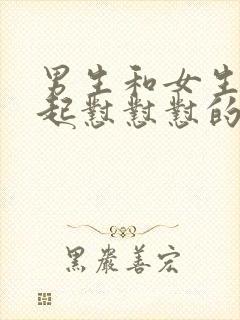 男生和女生
起懟懟懟的
黑嚴善宏